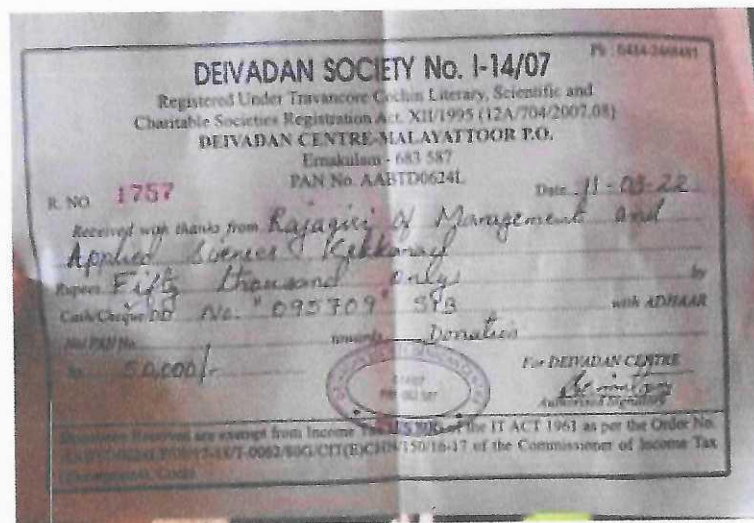 Ph : 0484-2468481
DEIVADAN SOCIETY No. I-14/07
Registered Under Travancore Cochin Literary, Scientific and
Charitable Societies Registration Act. XII/1995 (12A/704/2007.08)
DEIVADAN CENTRE-MALAYATTOOR P.O.
Ernakulam - 683 587
PAN No. AABTD0624L
R. NO 1757 Date 11-03-22
Received with thanks from Rajagiri of Management and
Applied Sciences Kakkanad
Rupees Fifty thousand only by
Cash/Cheque/DD No. "095709" SIB with ADHAAR
No/PAN No. towards Donation
Rs. 50,000/-
For DEIVADAN CENTRE
Authorised Signatory
Donations Received are exempt from Income Tax U/S 80G of the IT ACT 1961 as per the Order No.
/80G/CIT(E)CHN/150/16-17 of the Commissioner of Income Tax
(Exemptions), Cochi